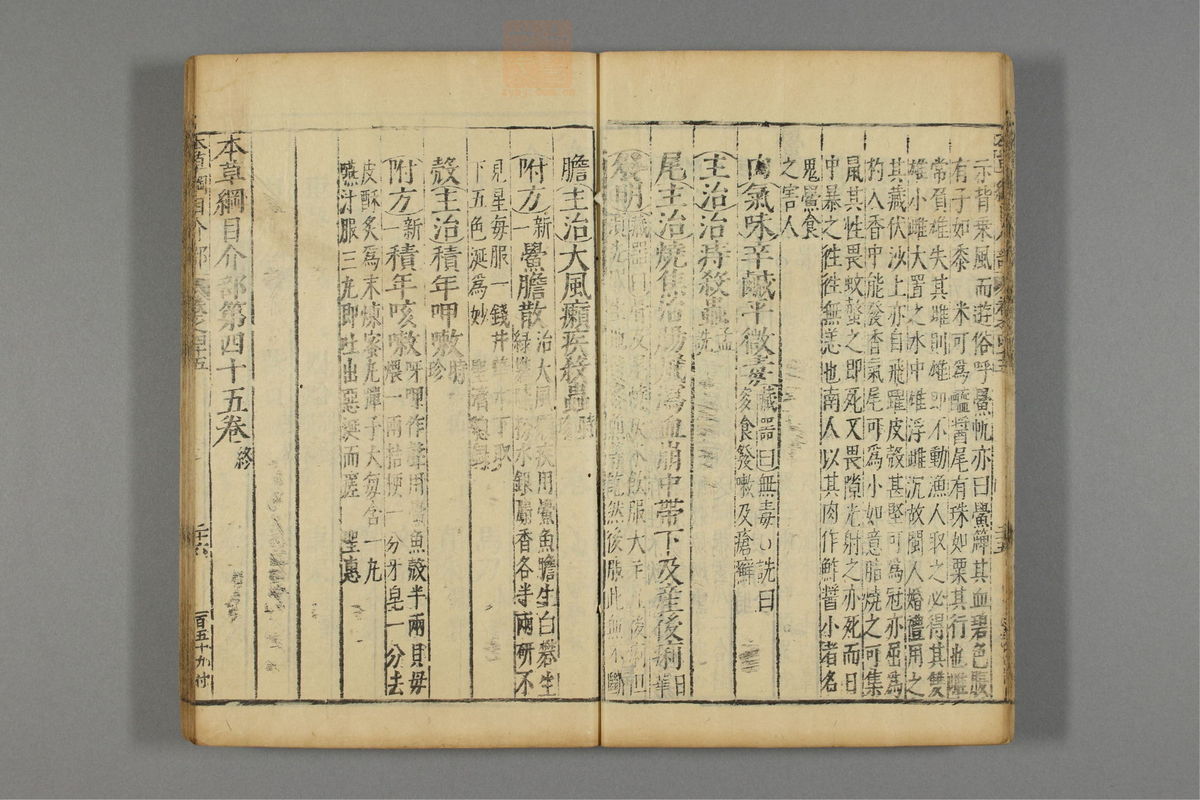 示背乘風而遊俗呼鱟帆亦曰鱟簰其血碧色腹
有子如黍米可爲醢醬尾有珠如粟其行也雌
常負雄失其雌則雄即不動漁人取之必得其雙
雄小雌大置之水中雄浮雌沉故閩人婚禮用之
其藏伏沙上亦自飛躍皮殻甚堅可爲冠亦屈爲
杓入香中能發香氣尾可爲小如意脂燒之可集
鼠其性畏蚊螫之即死又畏隙光射之亦死而日
中暴之往往無恙也南人以其肉作鮓醬小者名
鬼鱟食
之害人
肉氣味辛鹹平微毒藏器曰無毒〇詵曰
多食發嗽及瘡癬
主治治痔殺蟲孟
詵
尾主治燒焦治腸風瀉血崩中帶下及産後痢日
華
發明藏器曰
然後服此無不斷
膽主治大風癩疾殺蟲時
附方新
一鱟膽散治大風癩疾用鱟魚膽生白礬生
水銀麝香各半兩研不
見星每服一錢井下取
下五色涎爲妙聖濟總録
殻主治積年呷嗽時
珍
附方新
一積年咳嗽呀呷作聲用鱟魚殻半兩貝母
煨一兩桔梗一分牙皂一分去
皮酥炙爲末煉蜜丸彈子大每含一丸
嚥汁服三丸即吐出惡涎而瘥聖惠
本草綱目介部第四十五卷終
本草綱目介部
二十六
百五十九付